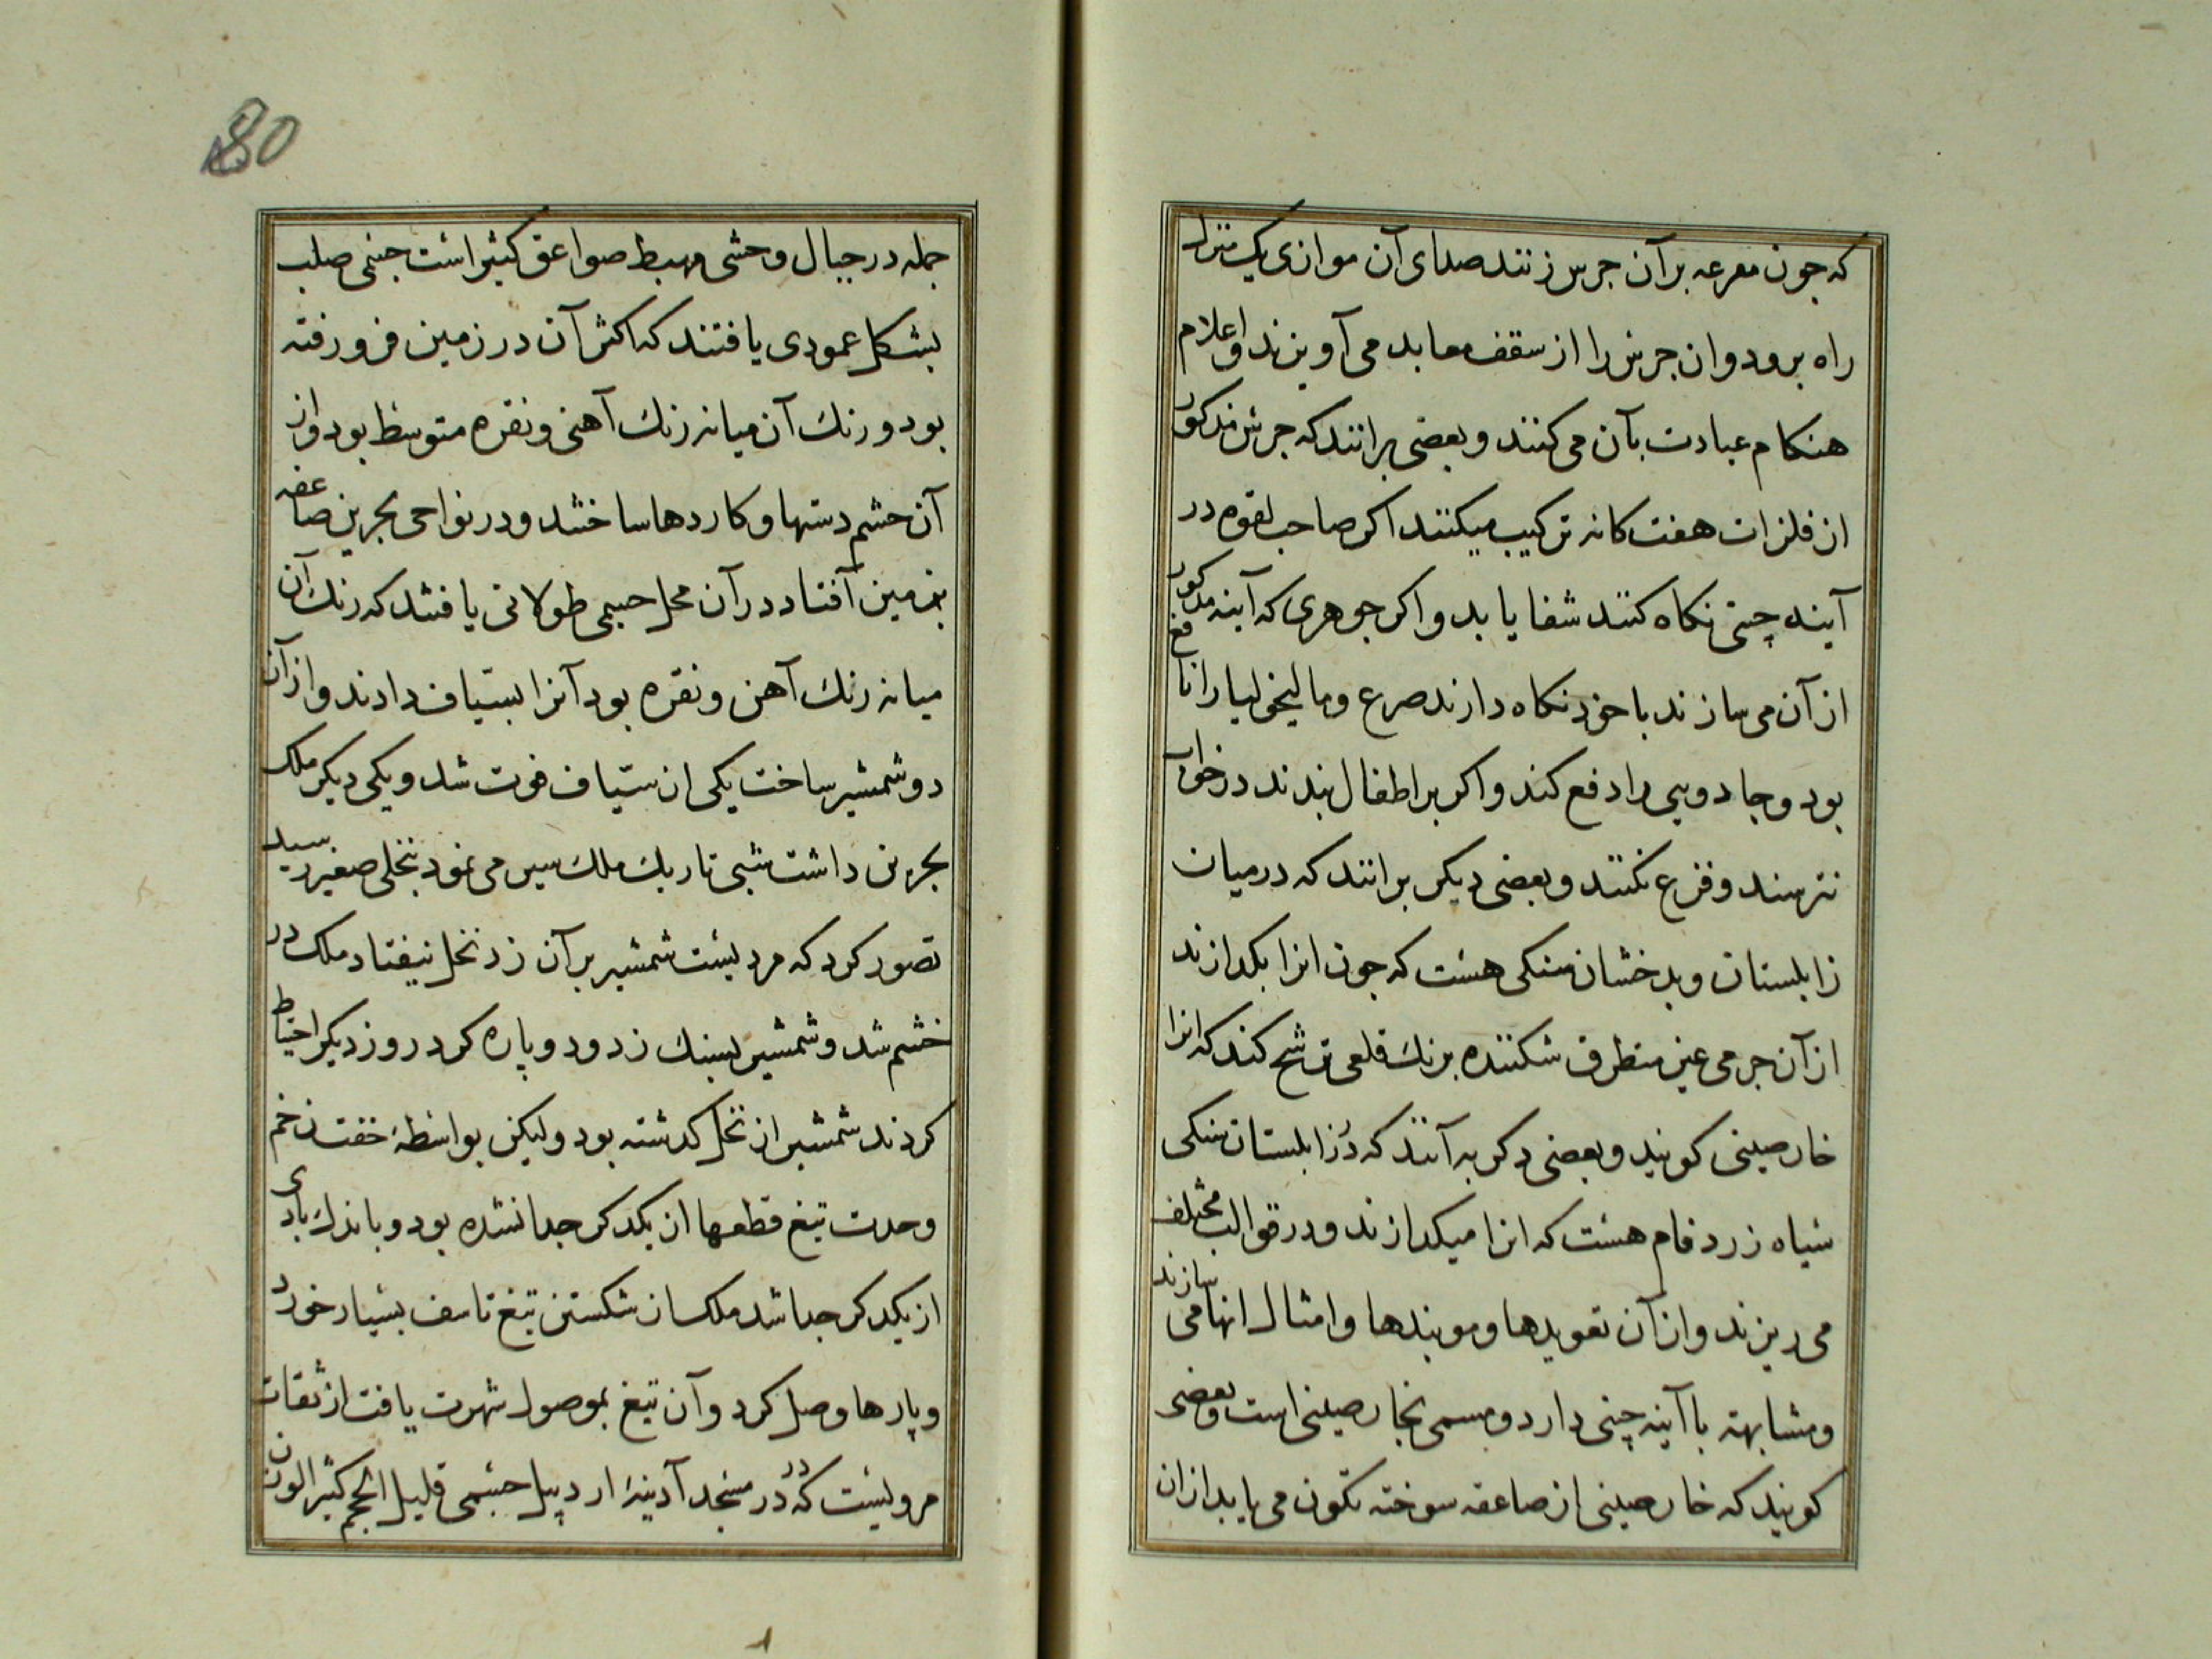 که جون مقرعه برآن جرس زنند صدای آن موازی یک منزل
راه برود وان جرس را از سقف معابد می آویزند و اعلام
هنکام عبادت بآن می کنند و بعضی برانند که جرس مذکور
از فلزات هفت کانه ترکیب میکنند اکر صاحب لقوه در
آینه چینی نکاه کنند شفا یابد و اکر جوهری که آینه مذکور
از آن می سازند با خود نکاه دارند صرع و مالیخولیا را نافع
بود و جادویی را دفع کند و اکر بر اطفال بندند در خواب
نترسند و فزع نکنند و بعضی دیکر برانند که در میان
زابلستان و بدخشان سنکی هست که جون انرا بکدازند
از آن جرمی غیر منطرق شکننده برنك قلعی ترشح کند که انرا
خارصینی کویند و بعضی دکر به آنند که در زابلستان سنکی
سیاه زرد فام هست که انرا میکدازند و در قوالب مختلف
می ریزند و از آن تعویدها و موبندها و امثال انها می سازند
و مشابهته با آینه چینی دارد و مسمی بخارصینی است و بعضی
کویند که خارصینی از صاعقه سوخته تکون می یابد ازان
80
جمله در جبال وحشی مهبط صواعق کثیر است جسمی صلب
بشکل عمودی یافتند که اکثر آن در زمین فرو رفته
بود و رنك آن میانه رنك آهنی و نقره متوسط بود و از
آن جسم دستها و کاردها ساختند و در نواحی بحرین صاعقه
بزمین آفتاد در آن محل جسمی طولانی یافتند که رنك آن
میانه رنك آهن و نقره بود آنرا بسیاف دادند و از آن
دو شمشیر ساخت یکی از سیاف فوت شد و یکی دیکر ملک
بحرین داشت شبی تاریك ملك سیر می نمود بنخلی صغیر رسید
تصور کرد که مردیست شمشیر برآن زد نخل نیفتاد ملک در
خشم شد و شمشیر بسنك زد و دو پاره کرد روز دیکر احتیاط
کردند شمشیر از نخل کدشته بود و لیکن بواسطهٔ خفت زخم
وحدت تیغ قطعها از یکدکر جدا نشده بود و باندك بادی
از یکدکر جدا شد ملک از شکستن تیغ تاسف بسیار خورد
و پارها وصل کرد و آن تیغ بموصول شهرت یافت از ثقات
مرویست که در مسجد آدینهٔ اردبیل جسمی قلیل الحجم کثیر الوزن